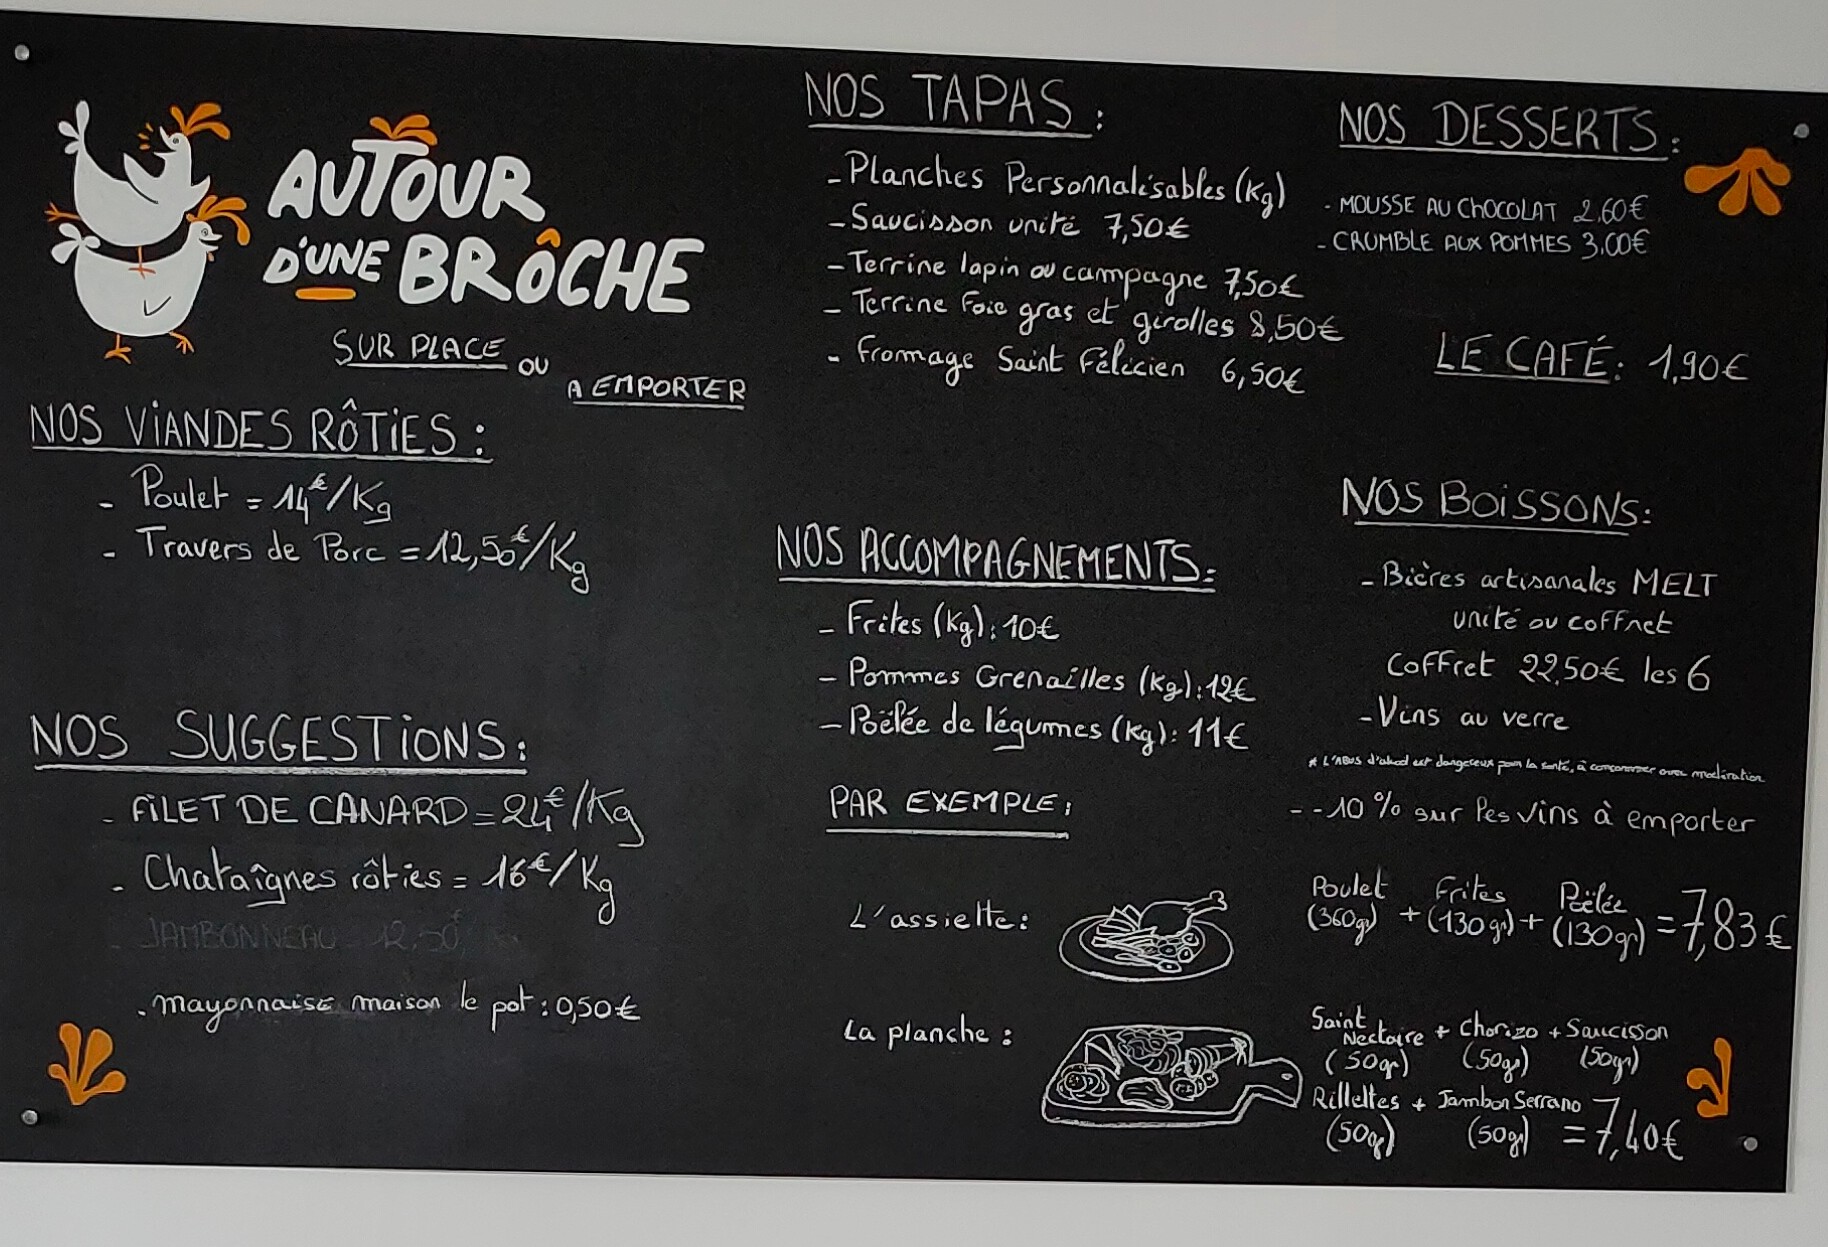 AUTOUR
D'UNE BRÔCHE
SUR PLACE OU
A EMPORTER
NOS VIANDES RÔTIES :
- Poulet = 14€/Kg
- Travers de Porc = 12,50€/Kg
NOS SUGGESTIONS :
- FILET DE CANARD = 24€/Kg
- Chataîgnes rôties = 16€/Kg
- JAMBONNEAU 12,50€
- mayonnaise maison le pot : 0,50€
NOS TAPAS :
- Planches Personnalisables (Kg)
- Saucisson unité 7,50€
- Terrine lapin ou campagne 7,50€
- Terrine Foie gras et girolles 8,50€
- Fromage Saint Félicien 6,50€
NOS ACCOMPAGNEMENTS :
- Frites (Kg) : 10€
- Pommes Grenailles (Kg) : 12€
- Poëlée de légumes (Kg) : 11€
PAR EXEMPLE :
L'assiette :
La planche :
NOS DESSERTS :
- MOUSSE AU CHOCOLAT 2,60€
- CRUMBLE AUX POMMES 3,00€
LE CAFÉ : 1,90€
NOS BOISSONS :
- Bières artisanales MELT
unité ou coffret
Coffret 22,50€ les 6
- Vins au verre
* L'ABUS d'alcool est dangereux pour la santé, à consommer avec modération
- -10 % sur les vins à emporter
Poulet + Frites + Poëlée = 7,83€
(360gr) (130gr) (130gr)
Saint Nectaire + Chorizo + Saucisson
(50gr) (50gr) (50gr)
Rillettes + Jambon Serrano = 7,40€
(50gr) (50gr)